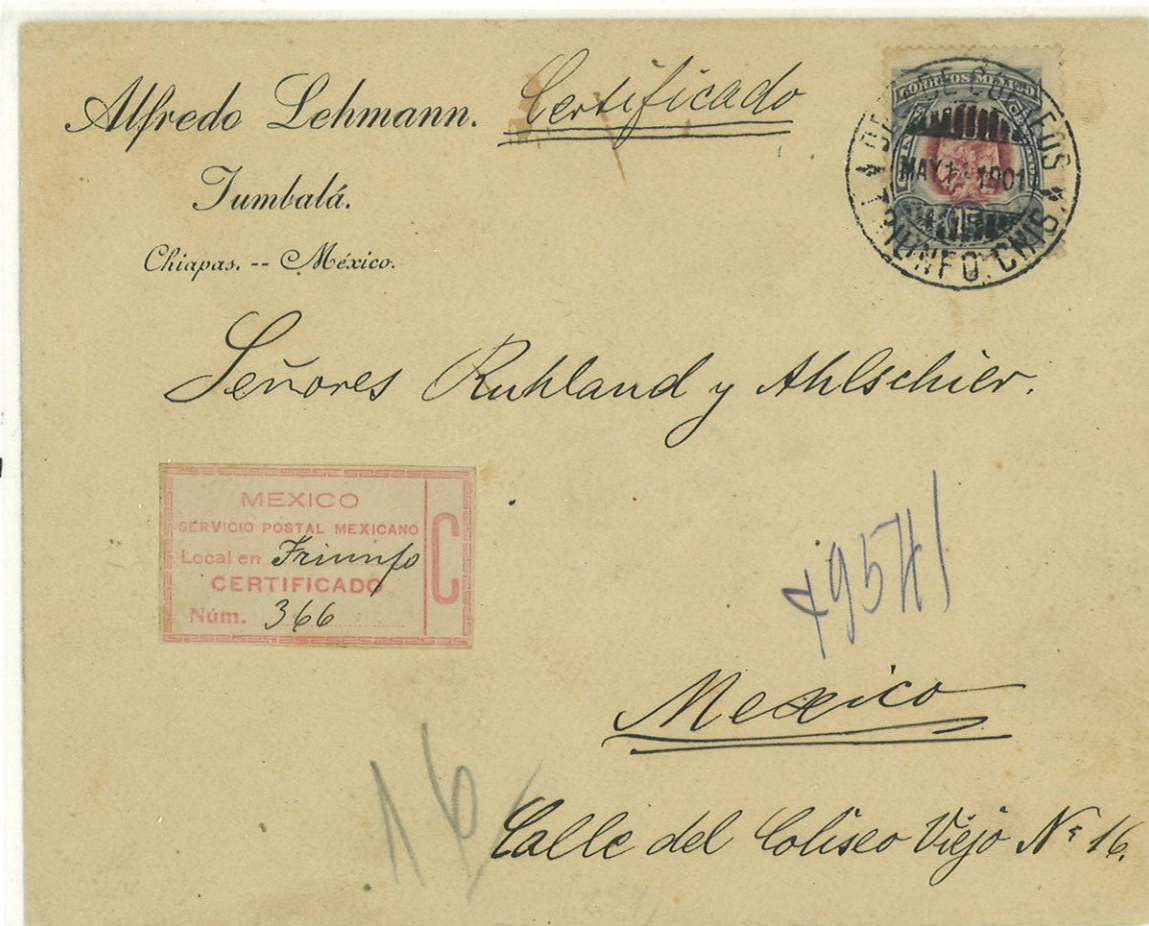 Alfredo Lehmann.
Certificado
Tumbalá.
Chiapas. -- México.
CORREOS MEXICO
MAY 1901
TRIUNFO. CHIS
Señores Ruhland y Ahlschier.
MEXICO
SERVICIO POSTAL MEXICANO
Local en Triunfo
CERTIFICADO
Núm. 366
C
Mexico
16
Calle del Coliseo Viejo Nº 16.